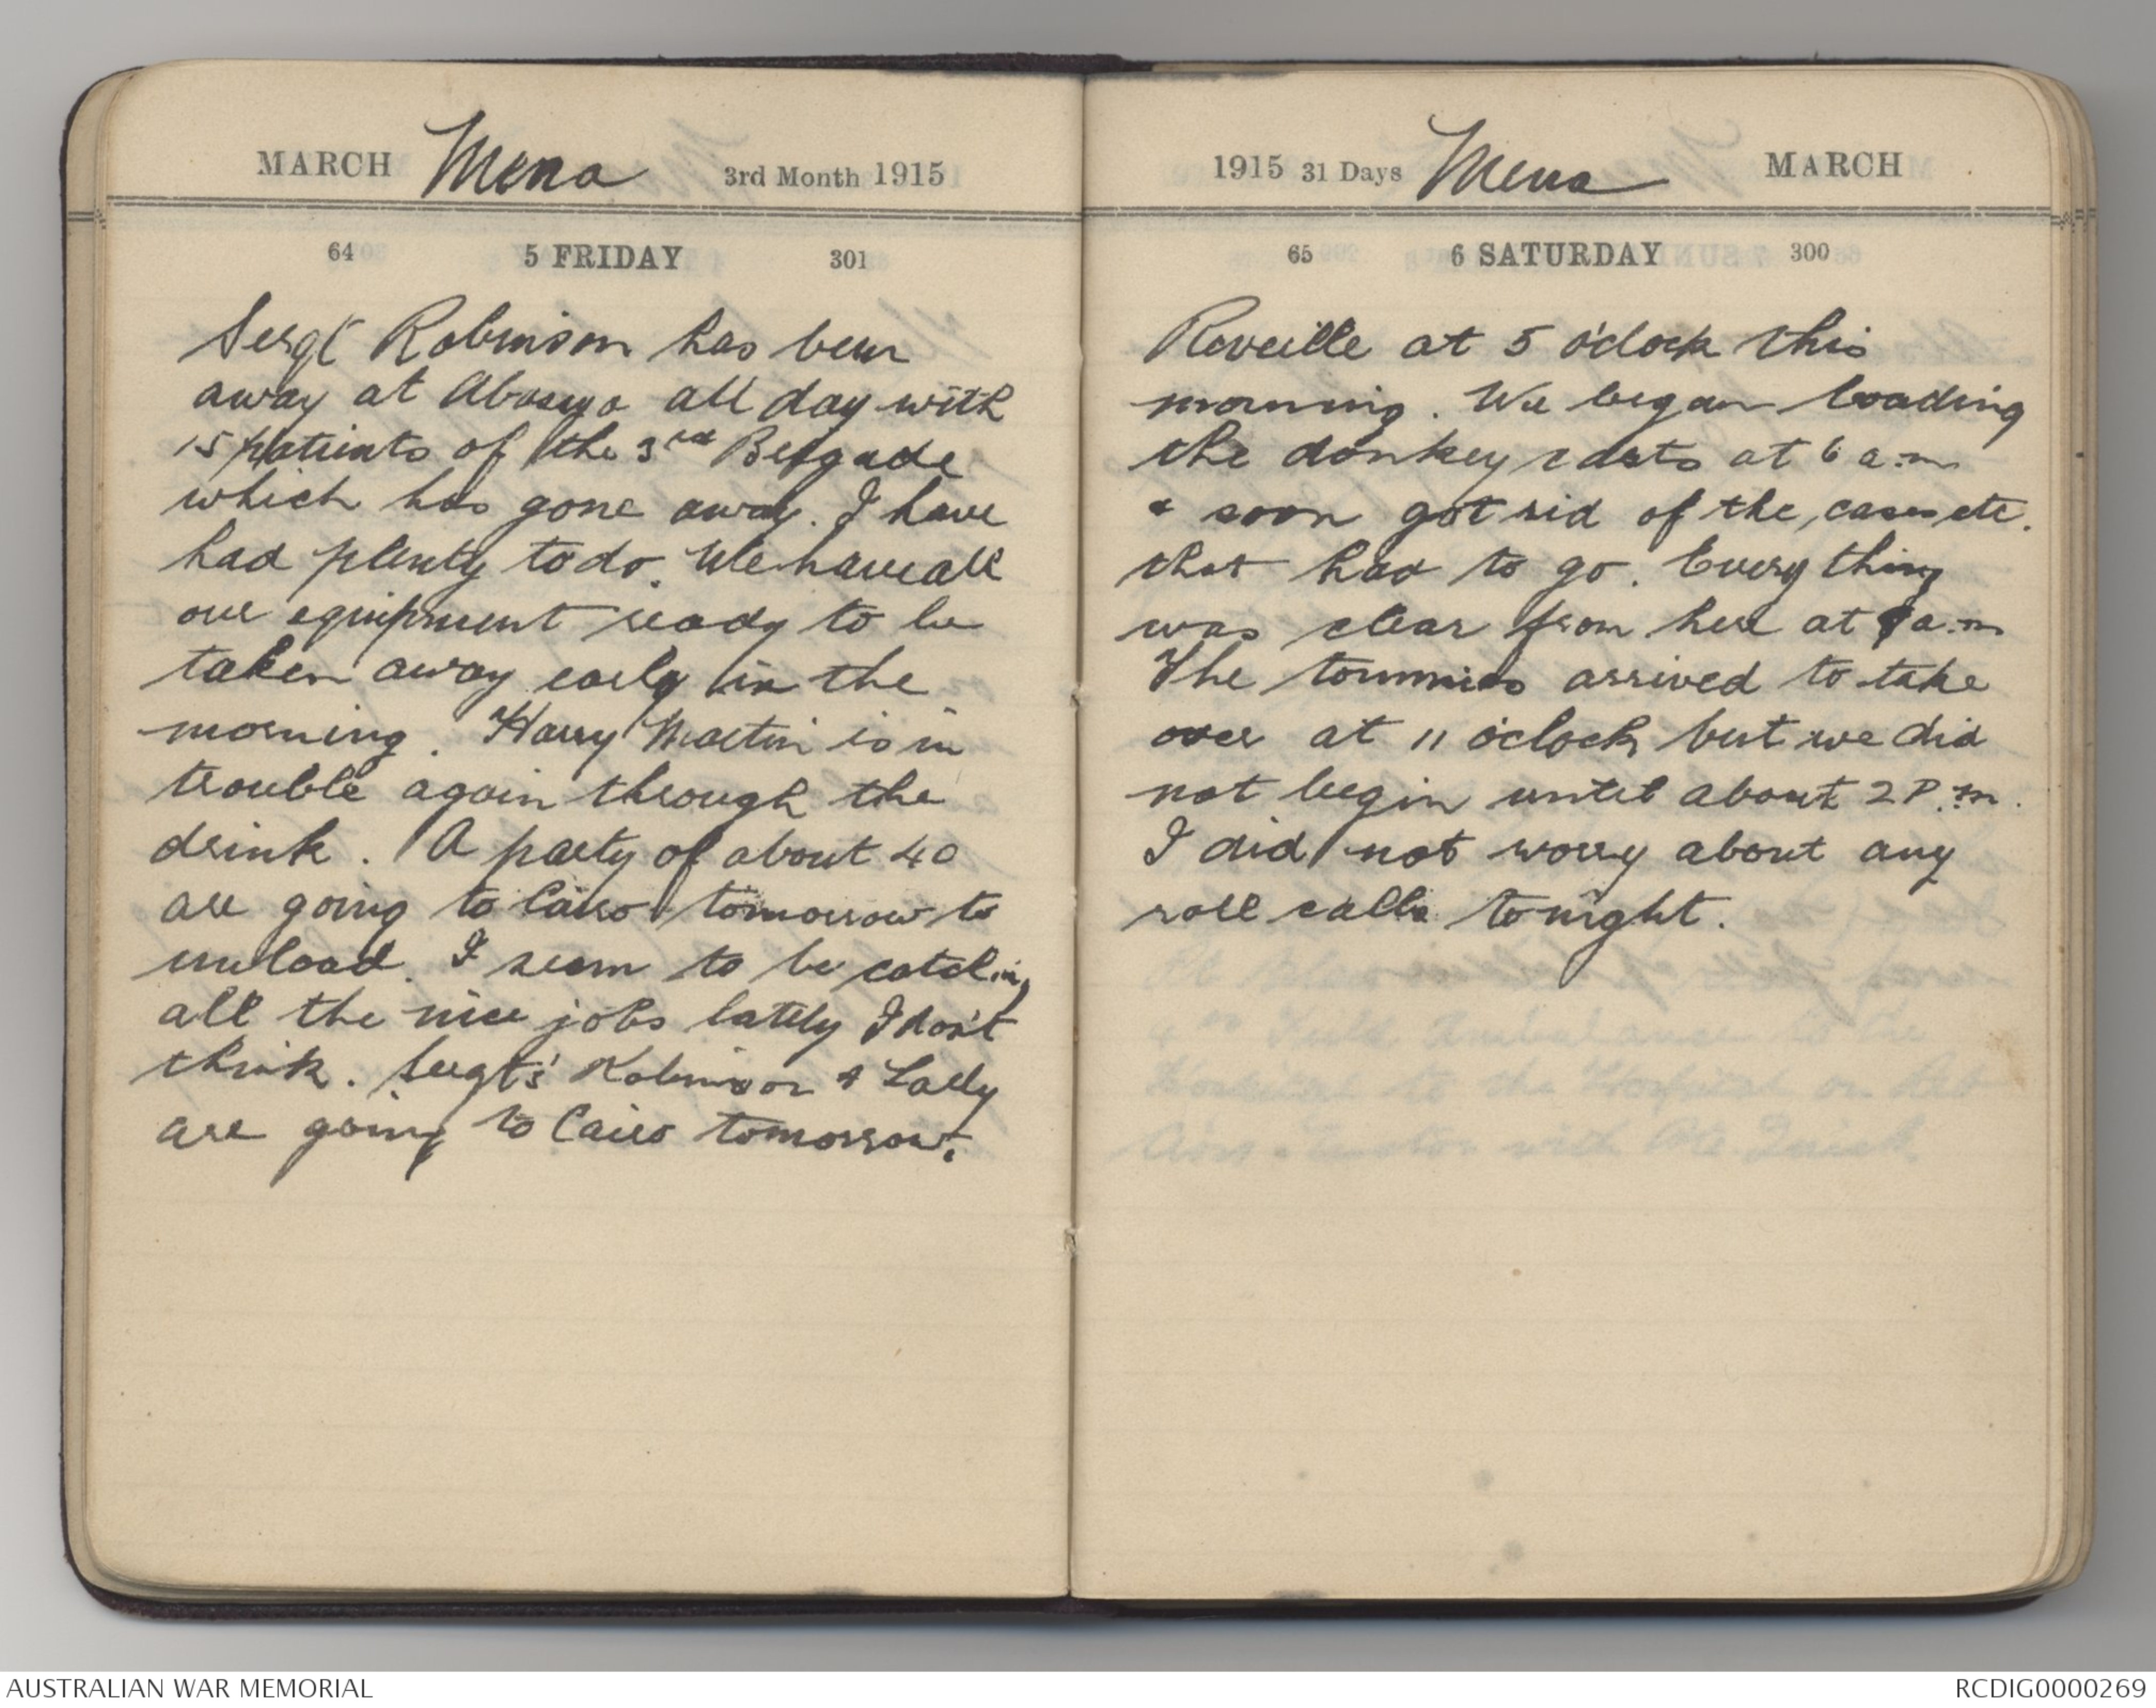 MARCH Mena 3rd Month 1915
64 5 FRIDAY 301
Sergt Robinson has been
away at Abassya all day with
15 patients of the 3rd Brigade
which has gone away. I have
had plenty to do. We have all
our equipment ready to be
taken away early in the
morning. Harry Martin is in
trouble again through the
drink. A party of about 40
are going to Cairo tomorrow to
unload. I seem to be catching
all the nice jobs lately I don't
think. Sergts' Robinson & Lally
are going to Cairo tomorrow.
1915 31 Days Mena MARCH
65 6 SATURDAY 300
Reveille at 5 o'clock this
morning. We began loading
the donkey carts at 6 a.m
& soon got rid of the, cases etc.
that had to go. Every thing
was clear from here at 9 a.m
The tommies arrived to take
over at 11 o'clock but we did
not begin until about 2 P.m.
I did not worry about any
roll calls tonight.
AUSTRALIAN WAR MEMORIAL
RCDIG0000269